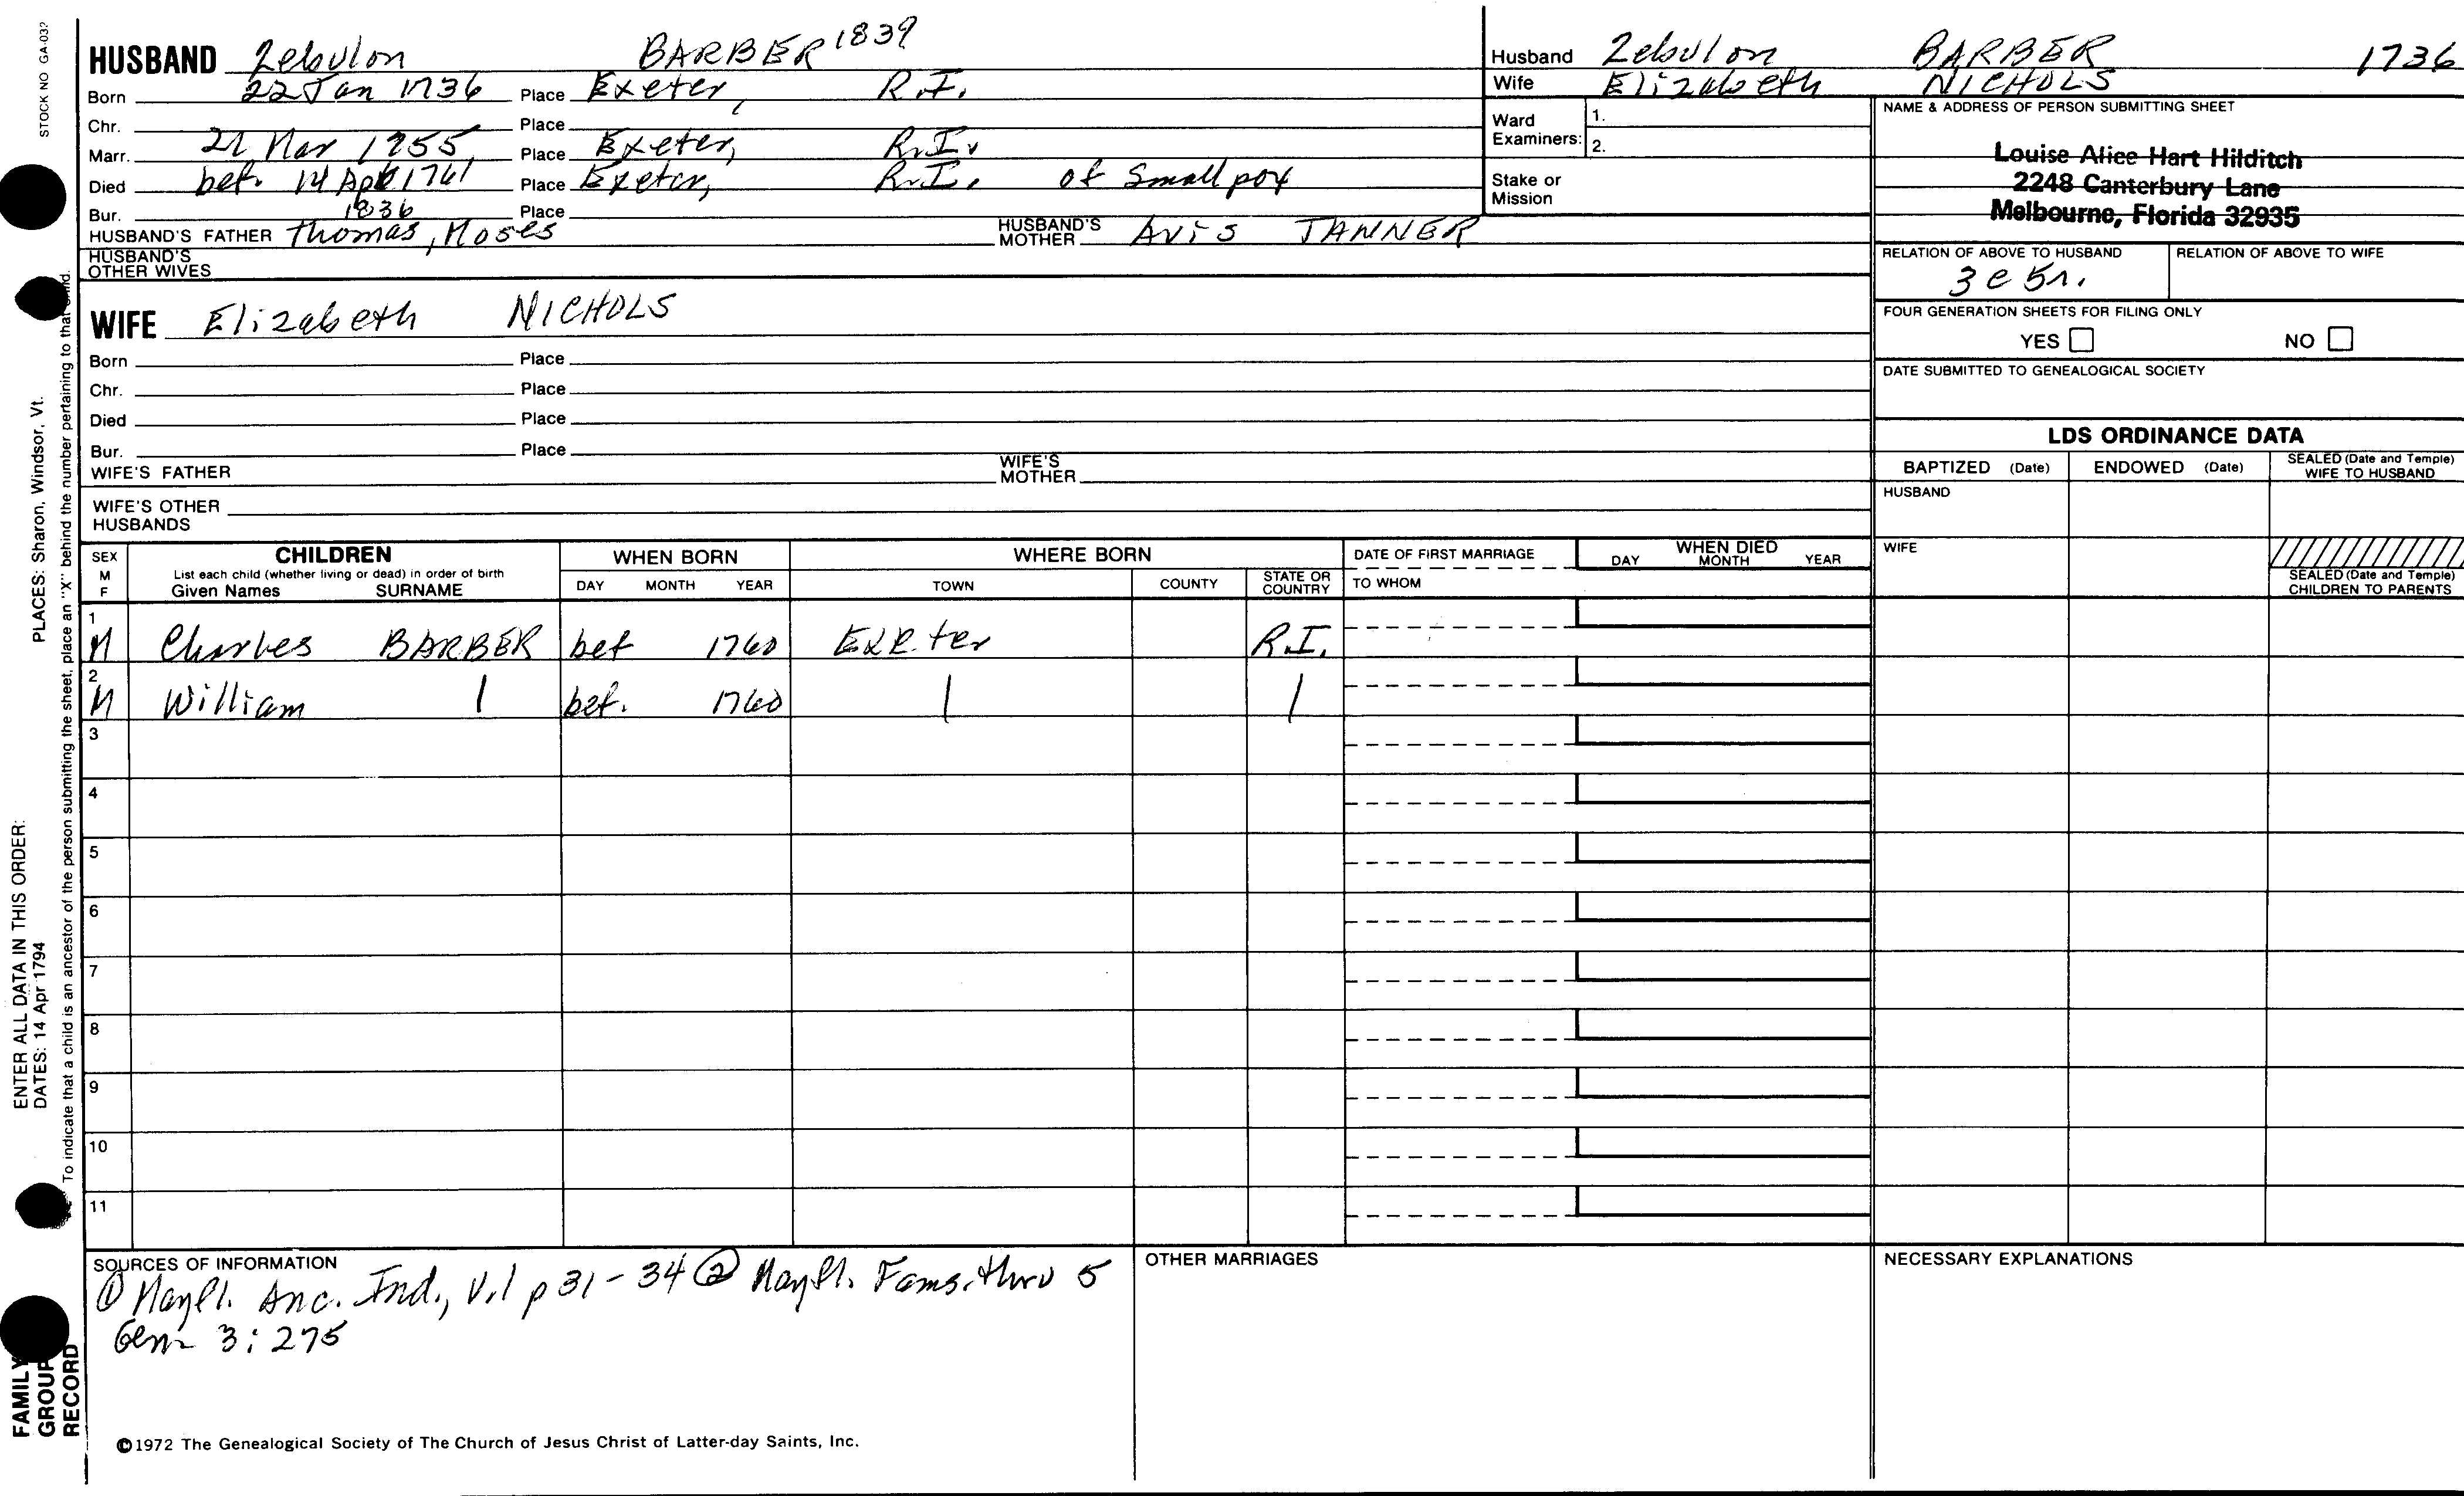 STOCK NO GA-032
HUSBAND Zebulon BARBER 1839
Born 22 Jan 1736 Place Exeter, R.I.
Chr. Place
Marr. Mar 1755, Place Exeter, R.I.
Died bef. 14 Apr 1761 Place Exeter, R.I. of Small pox
Bur. Place
1836
HUSBAND'S FATHER Thomas, Moses HUSBAND'S MOTHER Avis TANNER
HUSBAND'S
OTHER WIVES
WIFE Elizabeth NICHOLS
Born Place
Chr. Place
Died Place
Bur. Place
WIFE'S FATHER WIFE'S MOTHER
WIFE'S OTHER
HUSBANDS
Husband Zebulon BARBER 1736
Wife Elizabeth NICHOLS
Ward
Examiners: 1.
2.
Stake or
Mission
NAME & ADDRESS OF PERSON SUBMITTING SHEET
Louise Alice Hart Hilditch
2248 Canterbury Lane
Melbourne, Florida 32935
RELATION OF ABOVE TO HUSBAND RELATION OF ABOVE TO WIFE
3 c 5r.
FOUR GENERATION SHEETS FOR FILING ONLY
YES NO
DATE SUBMITTED TO GENEALOGICAL SOCIETY
LDS ORDINANCE DATA
BAPTIZED (Date) ENDOWED (Date) SEALED (Date and Temple) WIFE TO HUSBAND
HUSBAND
WIFE
SEALED (Date and Temple)
CHILDREN TO PARENTS
SEX M F CHILDREN WHEN BORN WHERE BORN DATE OF FIRST MARRIAGE WHEN DIED
List each child (whether living or dead) in order of birth
Given Names SURNAME DAY MONTH YEAR TOWN COUNTY STATE OR COUNTRY TO WHOM DAY MONTH YEAR
1 M Charles BARBER bef 1760 Exeter R.I.
2 M William | bef. 1760 | |
3
4
5
6
7
8
9
10
11
SOURCES OF INFORMATION
① Mayfl. Anc. Ind., V.1 p 31-34 ② Mayfl. Fams. thru 5
Gen 3:275
OTHER MARRIAGES
NECESSARY EXPLANATIONS
©1972 The Genealogical Society of The Church of Jesus Christ of Latter-day Saints, Inc.
ENTER ALL DATA IN THIS ORDER:
DATES: 14 Apr 1794
PLACES: Sharon, Windsor, Vt.
To indicate that a child is an ancestor of the person submitting the sheet, place an "X" behind the number pertaining to that
FAMILY
GROUP
RECORD